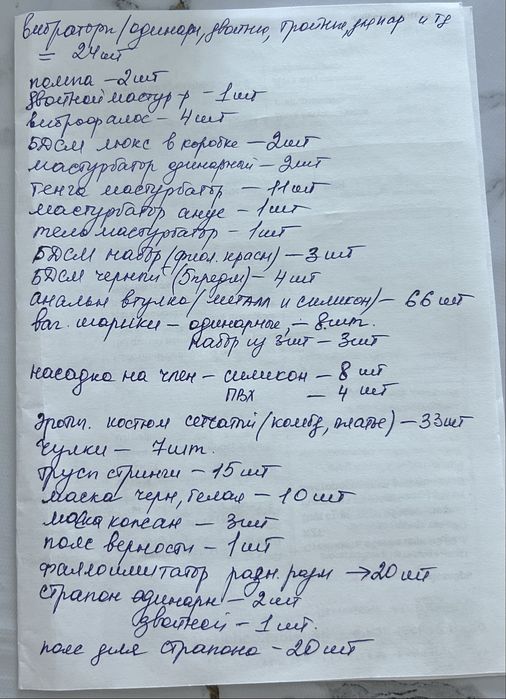 вибраторы (одинарн, двойные, тройные, и тд
= 24 шт
помпа – 2 шт
двойной мастур р – 1 шт
виброфалос – 4 шт
БДСМ люкс в коробке – 2 шт
мастурбатор одинарный – 2 шт
тенга мастурбатор – 11 шт
мастурбатор анус – 1 шт
тело мастурбатор – 1 шт
БДСМ набор (фиол. красн) – 3 шт
БДСМ черный (5 предм) – 4 шт
анальн втулка (металл и силикон) – 66 шт
ваг. шарики – одинарные, – 8 шт.
набор из 3 шт – 3 шт
насадка на член – силикон – 8 шт
ПВХ – 4 шт
Эрот. костюм сетчатый (комбд, платье) – 33 шт
чулки – 7 шт.
трусы стринги – 15 шт
маска черн, белая – 10 шт
маска – 3 шт
пояс верности – 1 шт
фаллоимитатор разн. разм → 20 шт
страпон одинарн – 2 шт
двойной – 1 шт.
пояс для страпона – 20 шт